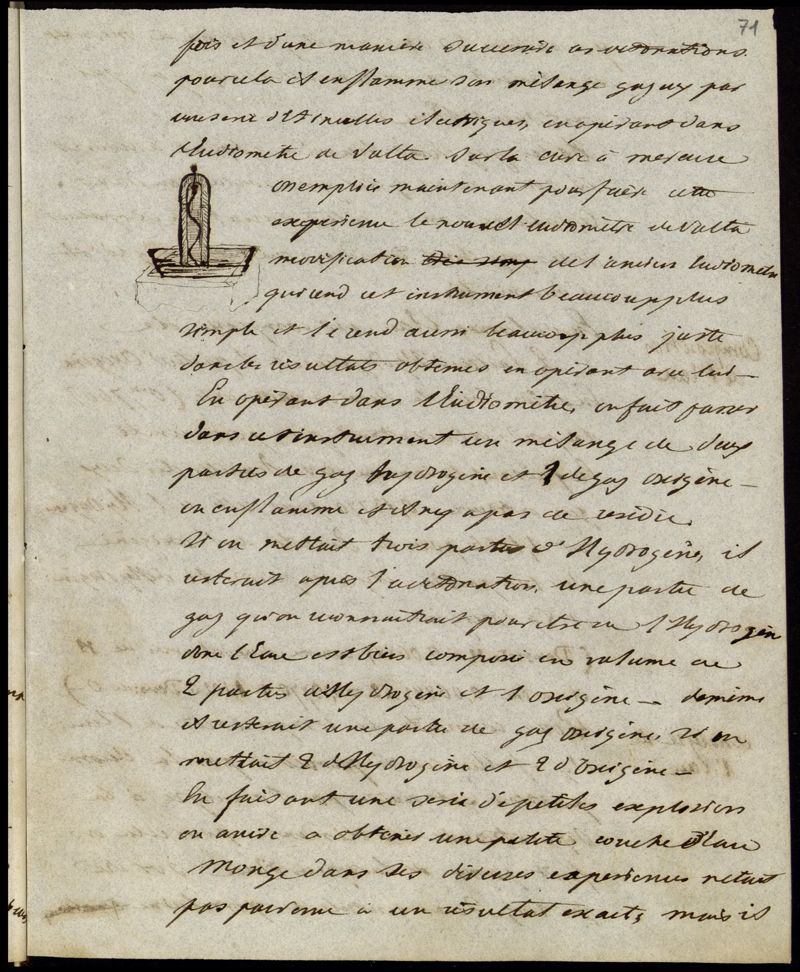 71
fois et d'une manière successive ces détonations.
pour cela il enflamme son mélange gazeux par
une serie d'étincelles électriques, en opérant dans
l'Eudiomètre de Volta. Sur la cuve à mercure
on emploie maintenant pour faire cette
experience le nouvel Eudiomètre de Volta
modification de l'ancien Eudiomètre
qui rend cet instrument beaucoup plus
simple et le rend aussi beaucoup plus juste
dans les résultats obtenus en opérant avec lui —
En opérant dans l'Eudiomètre, on fait passer
dans cet instrument un mélange de deux
parties de gaz hydrogène et 1 de gaz oxigène —
on enflamme et il n'y a pas de residu.
Si on mettait trois parties d'Hydrogène, il
resterait après la détonation, une partie de
gaz qu'on reconnaitrait pour être de l'Hydrogène
donc l'Eau est bien composée en volume de
2 parties d'Hydrogène et 1 oxigène — de même
il resterait une partie de gaz oxigène, si on
mettait 2 d'Hydrogène et 2 d'Oxigène —
En faisant une serie de petites explosions
on arrive a obtenir une petite couche d'Eau
Monge dans ses diverses experiences n'etait
pas parvenu à un résultat exact, mais il